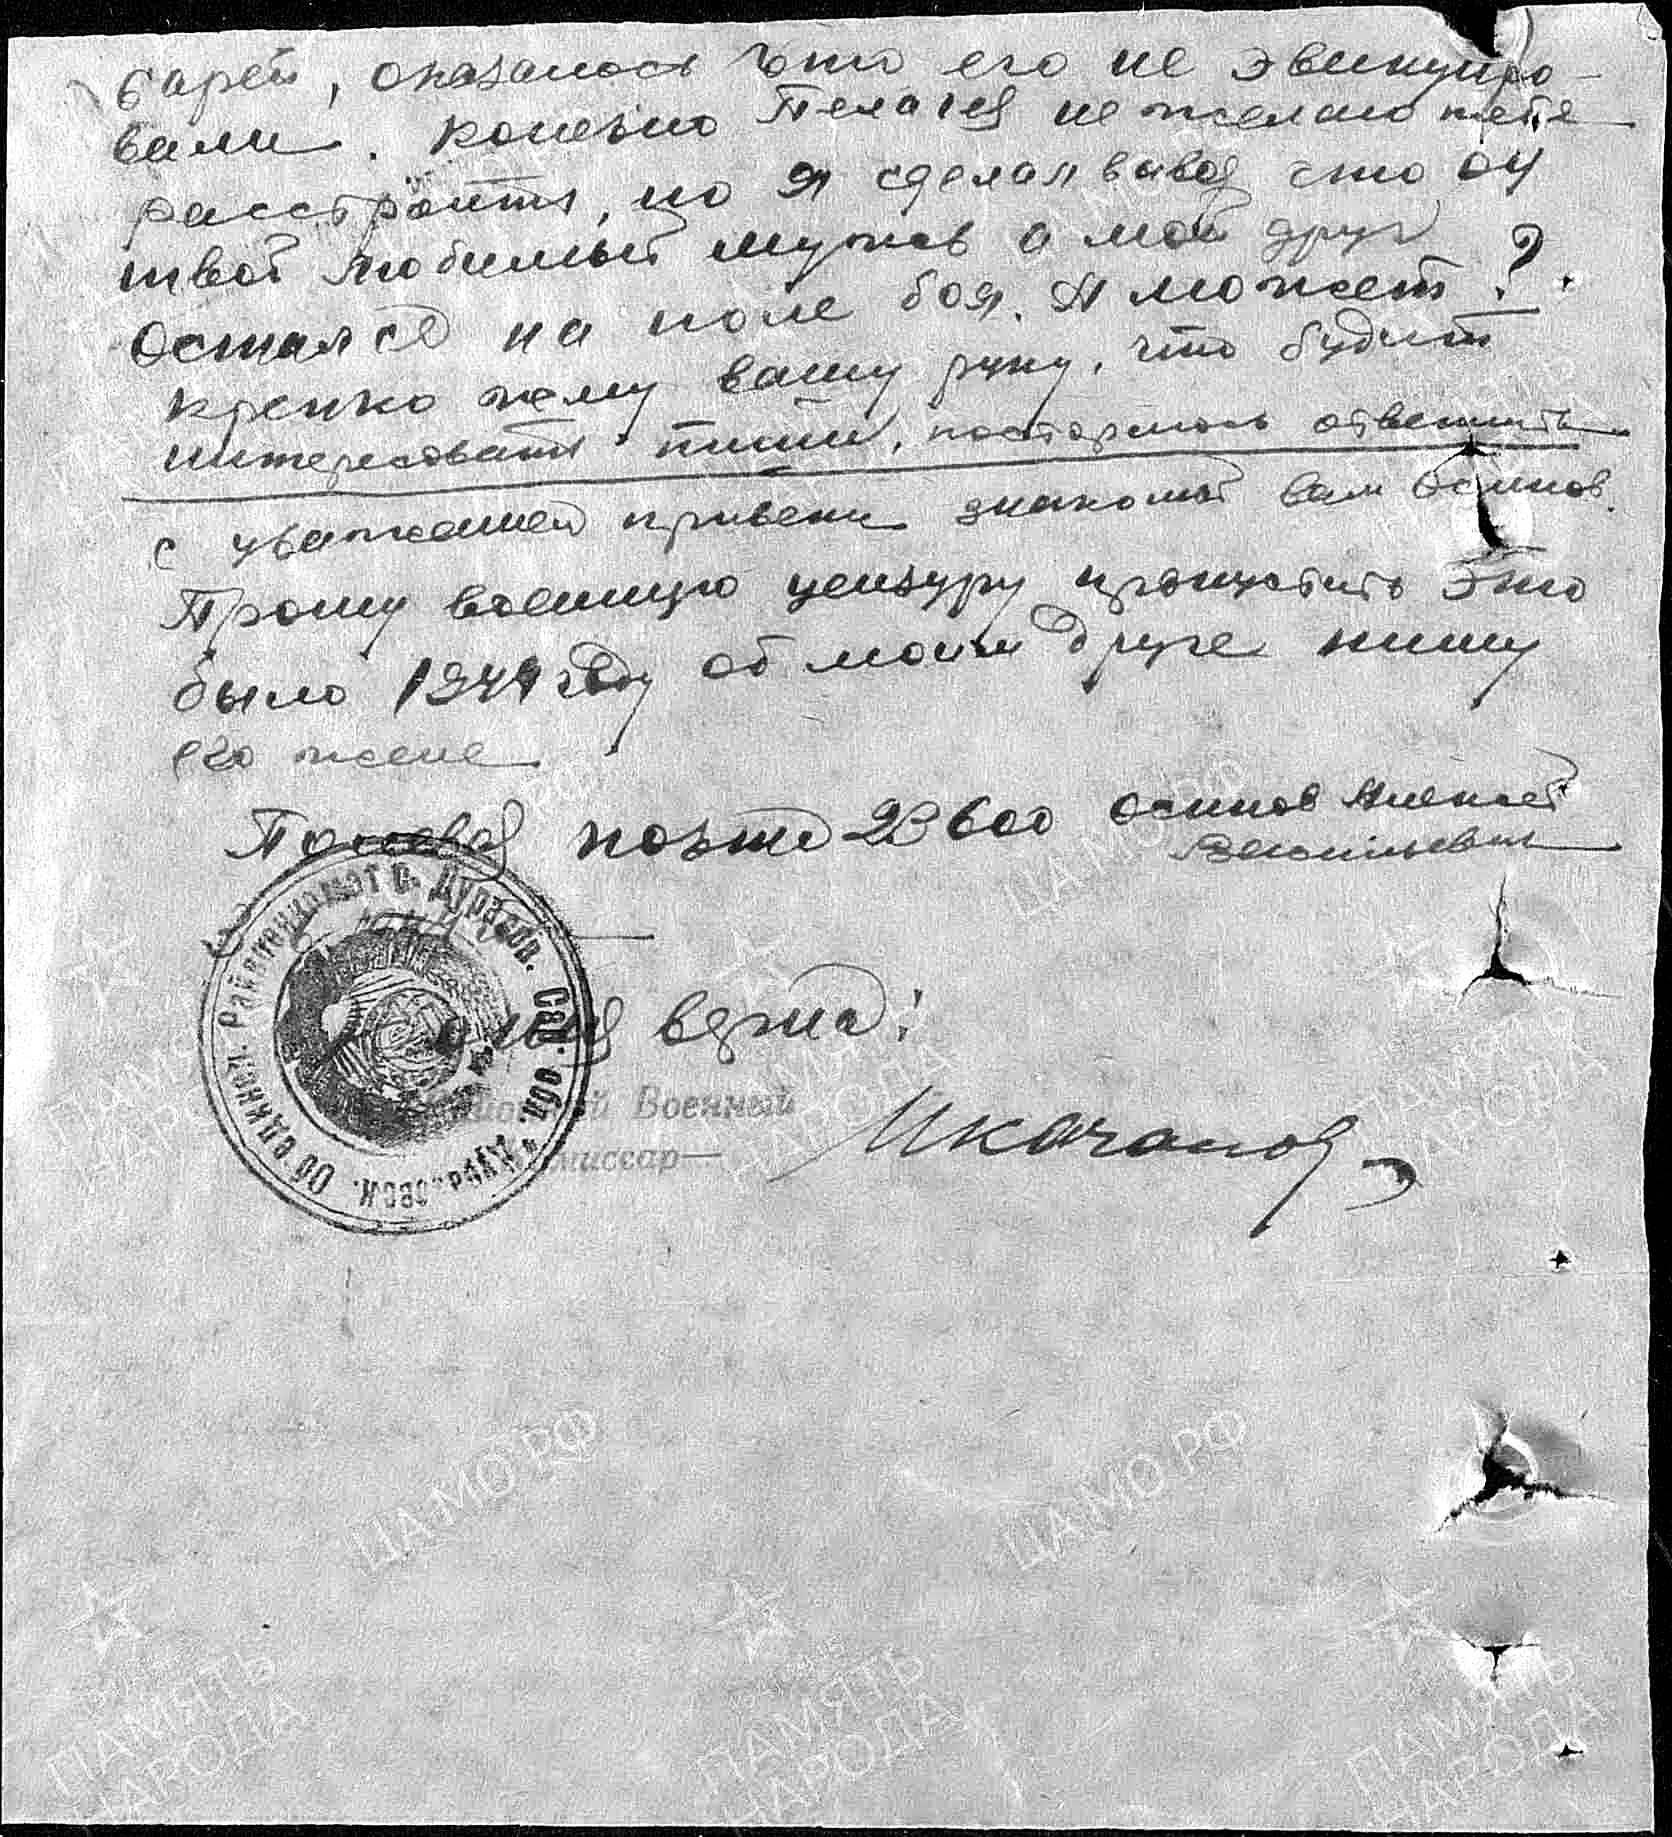 барей, оказалось что его не эвикуиро-
вали. Конечно Пелагея не желаю тебе
расстроить, но я сделал вывод что он
твой любимый мужев а мой друг
остался на поле боя. А может?.
крепко жму вашу руку, что будит
интересовать пиши, постораюсь ответить
с уважением привети знакомый вам Осипов.
Прошу военную цензуру пропустить это
было 1941 году об моим друге пишу
его жене
Полевая почта 23600 Осипов Алексей
Васильевич
Об'единен. Райвоенкомат с. Дурасов.
обл.
верна:
Военный
Комиссар—
Икачанов
ЦАМО.РФ
ПАМЯТЬ
НАРОДА